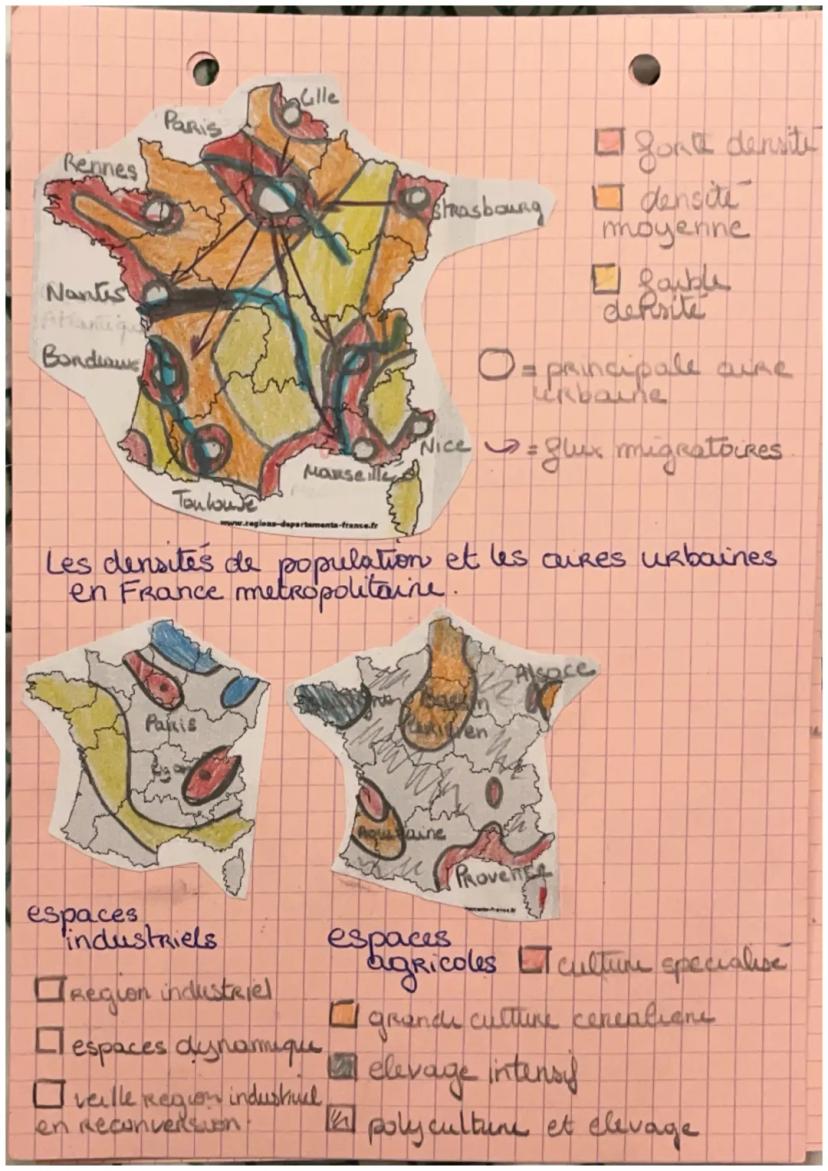 Lille
Paris
Rennes
Strasbourg
Nantes
Atlantique
Bordeaux
Nice
Marseille
Toulouse
www.regions-departements-france.fr
forte densité
densité
moyenne
faible
densité
= principale aire
urbaine
= flux migratoires
Les densités de population et les aires urbaines
en France metropolitaine.
Paris
Lyon
espaces
industriels
region industriel
espaces dynamique
veille region industriel
en reconversion.
Alsace
Bassin
Parisien
Aquitaine
Provence
espaces
agricoles
culture specialisé
grande culture cerealiere
elevage intensif
polyculture et elevage